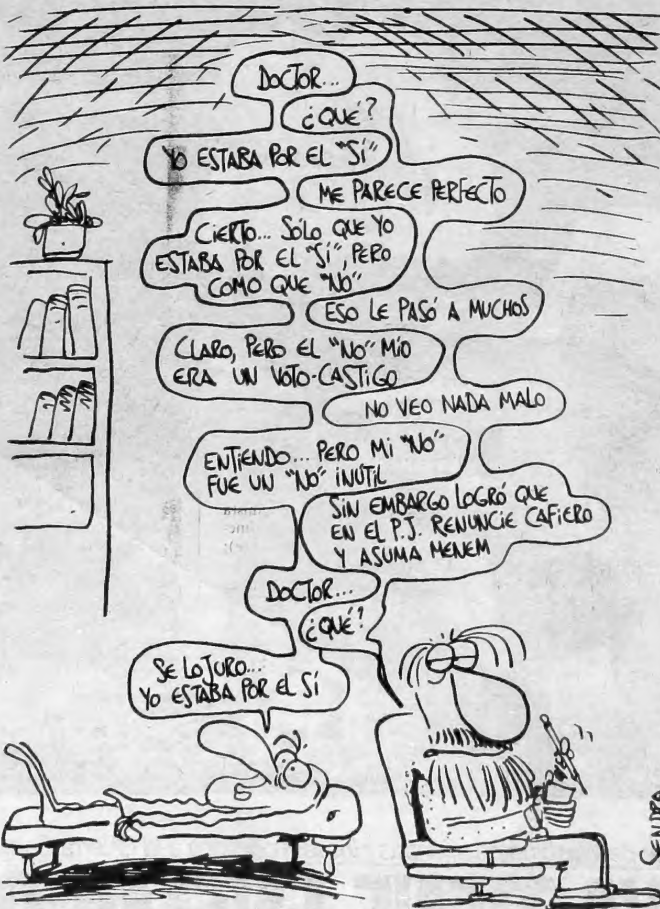 DOCTOR...
¿QUÉ?
YO ESTABA POR EL "SÍ"
ME PARECE PERFECTO
CIERTO... SÓLO QUE YO
ESTABA POR EL "SÍ", PERO
COMO QUE "NO"
ESO LE PASÓ A MUCHOS
CLARO, PERO EL "NO" MÍO
ERA UN VOTO-CASTIGO
NO VEO NADA MALO
ENTIENDO... PERO MI "NO"
FUE UN "NO" INÚTIL
SIN EMBARGO LOGRÓ QUE
EN EL P.J. RENUNCIE CAFIERO
Y ASUMA MENEM
DOCTOR...
¿QUÉ?
SE LO JURO...
YO ESTABA POR EL SÍ
SENDRA